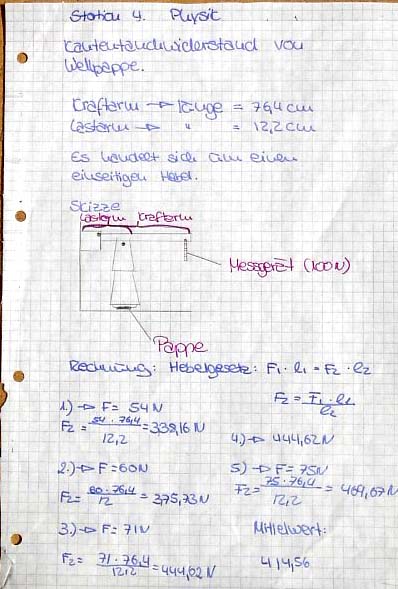 Station 4. Physik
Kantenstauchwiderstand von
Wellpappe.
Kraftarm → Länge = 76,4 cm
Lastarm → " = 12,2 cm
Es handelt sich um einen
einseitigen Hebel.
Skizze
Lastarm Kraftarm
Messgerät (100N)
Pappe
Rechnung: Hebelgesetz: F₁ · l₁ = F₂ · l₂
F₂ = F₁ · l₁ / l₂
1.) → F = 54N
F₂ = 54 · 76,4 / 12,2 = 338,16 N
4.) → 444,62N
2.) → F = 60N
F₂ = 60 · 76,4 / 12 = 375,73N
5) → F = 75N
F₂ = 75 · 76,4 / 12,2 = 469,67N
3.) → F = 71N
F₂ = 71 · 76,4 / 12,2 = 444,62N
Mittelwert:
414,56